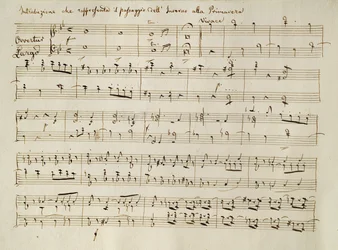 Introduzione che rappresenta il passaggio dall' Inverno alla Primavera
Vivace
Overtur
Largo